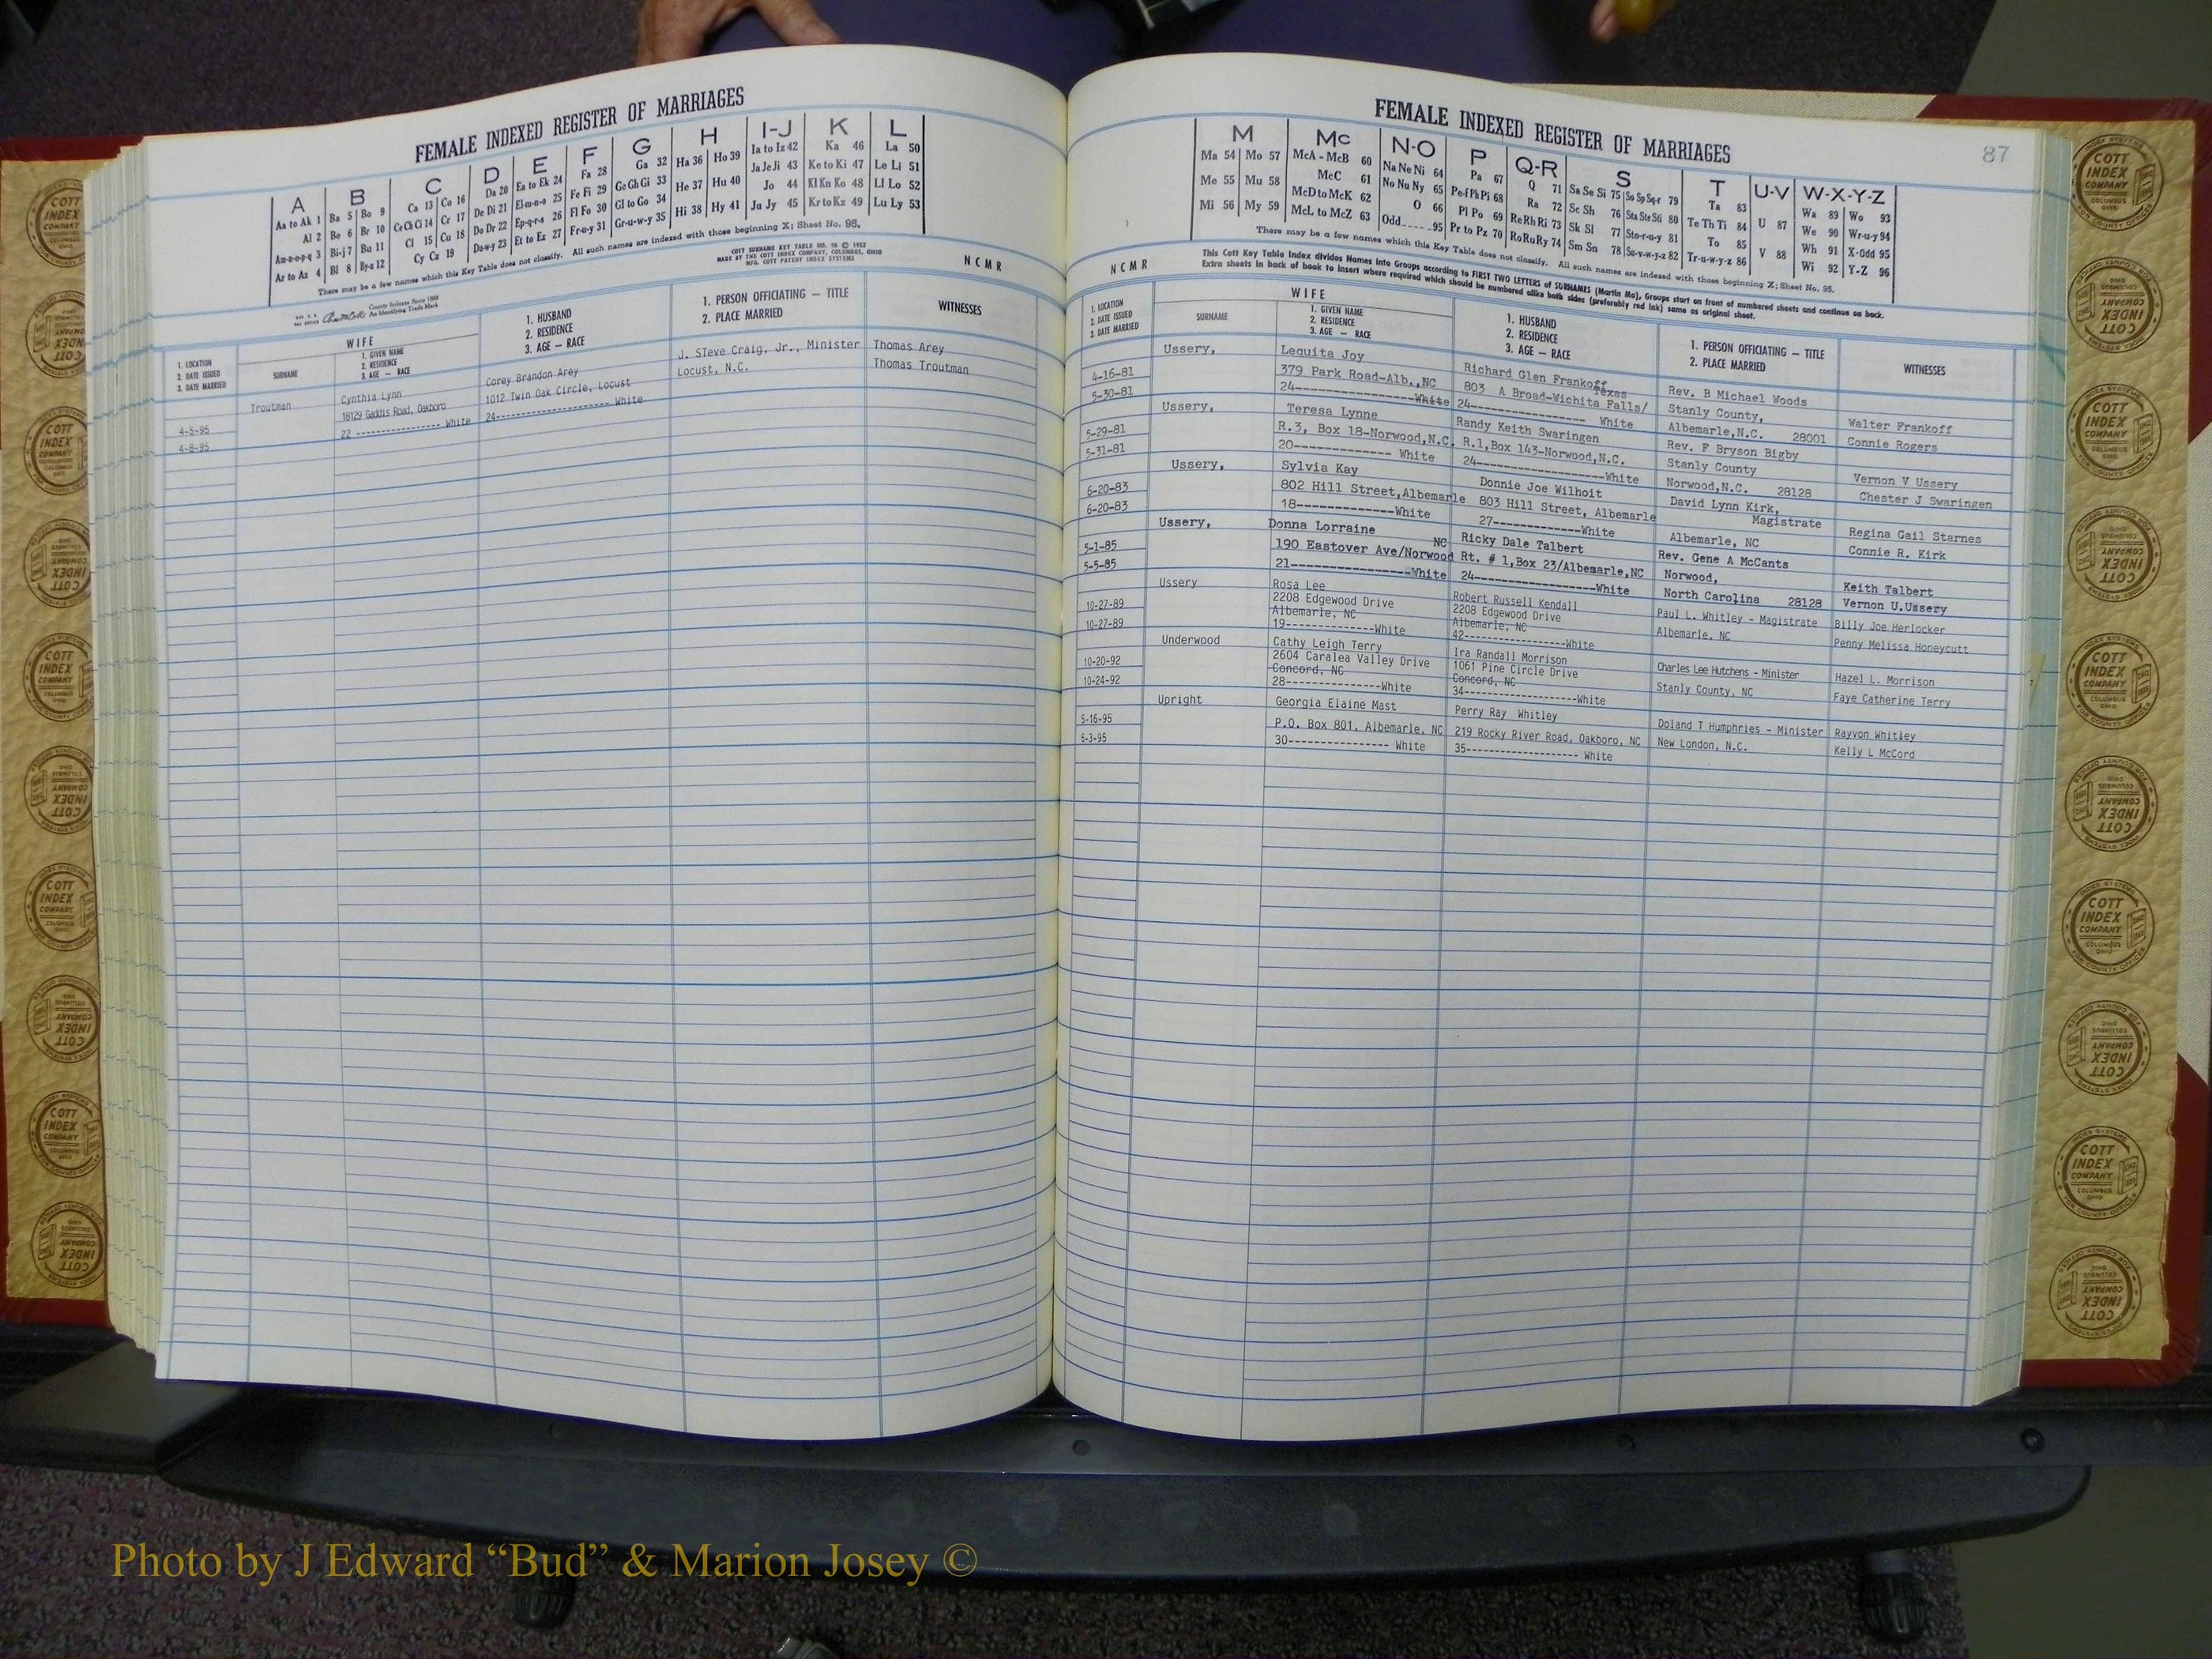 FEMALE INDEXED REGISTER OF MARRIAGES
A B C D E F G H I-J K L
Aa to Ak 1 Ba 5 Bo 9 Ca 13 Co 16 Da 20 Ea to Ek 24 Fa 28 Ga 32 Ha 36 Ho 39 Ia to Iz 42 Ka 46 La 50
Al 2 Be 6 Br 10 Ce Ch Ci 14 Cr 17 De Di 21 El-m-n-o 25 Fe Fi 29 Ge Gh Gi 33 He 37 Hu 40 Ja Je Ji 43 Ke to Ki 47 Le Li 51
Am-n-o-p-q 3 Bi-j 7 Bu 11 Cl 15 Cu 18 Do Dr 22 Ep-q-r-s 26 Fl Fo 30 Gl to Go 34 Hi 38 Hy 41 Jo 44 Kl Kn Ko 48 Ll Lo 52
Ar to Az 4 Bl 8 By-z 12 Cy Cz 19 Du-w-y 23 Et to Ez 27 Fr-u-y 31 Gr-u-w-y 35 Ju Jy 45 Kr to Kz 49 Lu Ly 53
There may be a few names which this Key Table does not classify. All such names are indexed with those beginning X; Sheet No. 95.
COTT SURNAME KEY TABLE NO. 96 © 1952
MADE BY THE COTT INDEX COMPANY, COLUMBUS, OHIO
MFG. COTT PATENT INDEX SYSTEMS
NCMR
County Indexes Since 1888
An Identifying Trade Mark
1. LOCATION
2. DATE ISSUED
3. DATE MARRIED
WIFE
SURNAME
1. GIVEN NAME
2. RESIDENCE
3. AGE — RACE
1. HUSBAND
2. RESIDENCE
3. AGE — RACE
1. PERSON OFFICIATING — TITLE
2. PLACE MARRIED
WITNESSES
Troutman
4-5-95
4-8-95
Cynthia Lynn
18129 Gaddis Road, Oakboro
22 ---------------- White
Corey Brandon Arey
1012 Twin Oak Circle, Locust
24-------------------- White
J. STeve Craig, Jr., Minister
Locust, N.C.
Thomas Arey
Thomas Troutman
FEMALE INDEXED REGISTER OF MARRIAGES
87
M Mc N-O P Q-R S T U-V W-X-Y-Z
Ma 54 Mo 57 McA - McB 60 Na Ne Ni 64 Pa 67 Q 71 Sa Se Si 75 So Sp Sq-r 79 Ta 83 U 87 Wa 89 Wo 93
Me 55 Mu 58 McC 61 No Nu Ny 65 Pe-f Ph Pi 68 Ra 72 Sc Sh 76 Sta Ste Sti 80 Te Th Ti 84 V 88 We 90 Wr-u-y 94
Mi 56 My 59 McD to McK 62 O 66 Pl Po 69 Re Rh Ri 73 Sk Sl 77 Sto-r-u-y 81 To 85 Wh 91 X-Odd 95
McL to McZ 63 Odd 95 Pr to Pz 70 Ro Ru Ry 74 Sm Sn 78 Su-v-w-y-z 82 Tr-u-w-y-z 86 Wi 92 Y-Z 96
There may be a few names which this Key Table does not classify. All such names are indexed with those beginning X; Sheet No. 95.
This Cott Key Table Index divides Names into Groups according to FIRST TWO LETTERS of SURNAMES (Martin Ma), Groups start on front of numbered sheets and continue on back.
Extra sheets in back of book to insert where required which should be numbered alike both sides (preferably red ink) same as original sheet.
NCMR
1. LOCATION
2. DATE ISSUED
3. DATE MARRIED
WIFE
SURNAME
1. GIVEN NAME
2. RESIDENCE
3. AGE — RACE
1. HUSBAND
2. RESIDENCE
3. AGE — RACE
1. PERSON OFFICIATING — TITLE
2. PLACE MARRIED
WITNESSES
Ussery,
4-16-81
5-30-81
Lequita Joy
379 Park Road-Alb.,NC
24-----------------White
Richard Glen Frankoff
Texas
803 A Broad-Wichita Falls/
24---------------- White
Rev. B Michael Woods
Stanly County,
Albemarle,N.C. 28001
Walter Frankoff
Connie Rogers
Ussery,
5-29-81
5-31-81
Teresa Lynne
R.3, Box 18-Norwood,N.C.
20--------------- White
Randy Keith Swaringen
R.1,Box 143-Norwood,N.C.
24-----------------White
Rev. F Bryson Bigby
Stanly County
Norwood,N.C. 28128
Vernon V Ussery
Chester J Swaringen
Ussery,
6-20-83
6-20-83
Sylvia Kay
802 Hill Street,Albemarle
18--------------White
Donnie Joe Wilhoit
803 Hill Street, Albemarle
27-------------White
David Lynn Kirk,
Magistrate
Albemarle, NC
Regina Gail Starnes
Connie R. Kirk
Ussery,
5-1-85
5-5-85
Donna Lorraine
NC
190 Eastover Ave/Norwood
21------------------White
Ricky Dale Talbert
Rt. # 1,Box 23/Albemarle,NC
24------------------White
Rev. Gene A McCants
Norwood,
North Carolina 28128
Keith Talbert
Vernon U.Ussery
Ussery
10-27-89
10-27-89
Rosa Lee
2208 Edgewood Drive
Albemarle, NC
19---------------White
Robert Russell Kendall
2208 Edgewood Drive
Albemarle, NC
42-----------------White
Paul L. Whitley - Magistrate
Albemarle, NC
Billy Joe Herlocker
Penny Melissa Honeycutt
Underwood
10-20-92
10-24-92
Cathy Leigh Terry
2604 Caralea Valley Drive
Concord, NC
28----------------White
Ira Randall Morrison
1061 Pine Circle Drive
Concord, NC
34------------------White
Charles Lee Hutchens - Minister
Stanly County, NC
Hazel L. Morrison
Faye Catherine Terry
Upright
5-16-95
6-3-95
Georgia Elaine Mast
P.O. Box 801, Albemarle, NC
30---------------- White
Perry Ray Whitley
219 Rocky River Road, Oakboro, NC
35------------------ White
Doland T Humphries - Minister
New London, N.C.
Rayvon Whitley
Kelly L McCord
COTT INDEX COMPANY COLUMBUS OHIO
Photo by J Edward “Bud” & Marion Josey ©